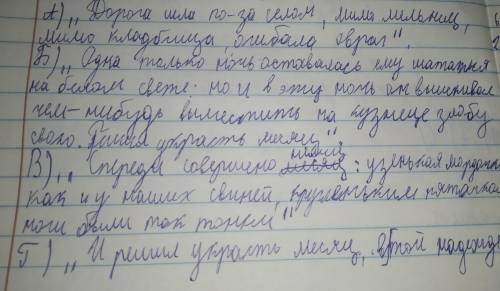 А) „ Дорога шла по-за селом, мимо мельниц,
мимо кладбища, огибала овраг ".
Б) „ Одна только ночь оставалась ему шататься
на белом свете: но и в эту ночь он выискивал
чем-нибудь выместить на кузнеце злобу
свою. Решил украсть месяц "
В) „ Спереди совершено немец : узенькая мордочка
как и у наших свиней, кругленьким пятачком
ноги были так тонки "
Г) „ И решил украсть месяц, в той надежде